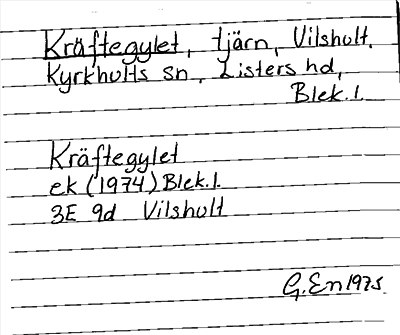 Kräftegylet, tjärn, Vilshult.
Kyrkhults sn, Listers hd,
Blek.l.
Kräftegylet
ek (1974) Blek.l.
3E 9d Vilshult
G.En 1975